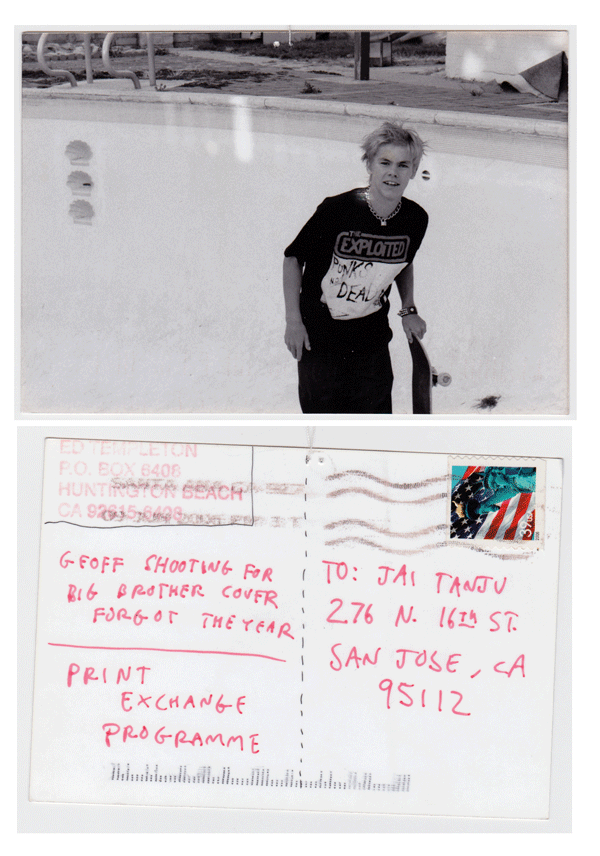 THE
EXPLOITED
PUNKS
NOT
DEAD
ED TEMPLETON
P.O. BOX 6408
HUNTINGTON BEACH
SANTA ANA CA
CA 92615-6408
GEOFF SHOOTING FOR
BIG BROTHER COVER
FORGOT THE YEAR
PRINT
EXCHANGE
PROGRAMME
39
TO: JAI TANJU
276 N. 16TH ST.
SAN JOSE, CA
95112